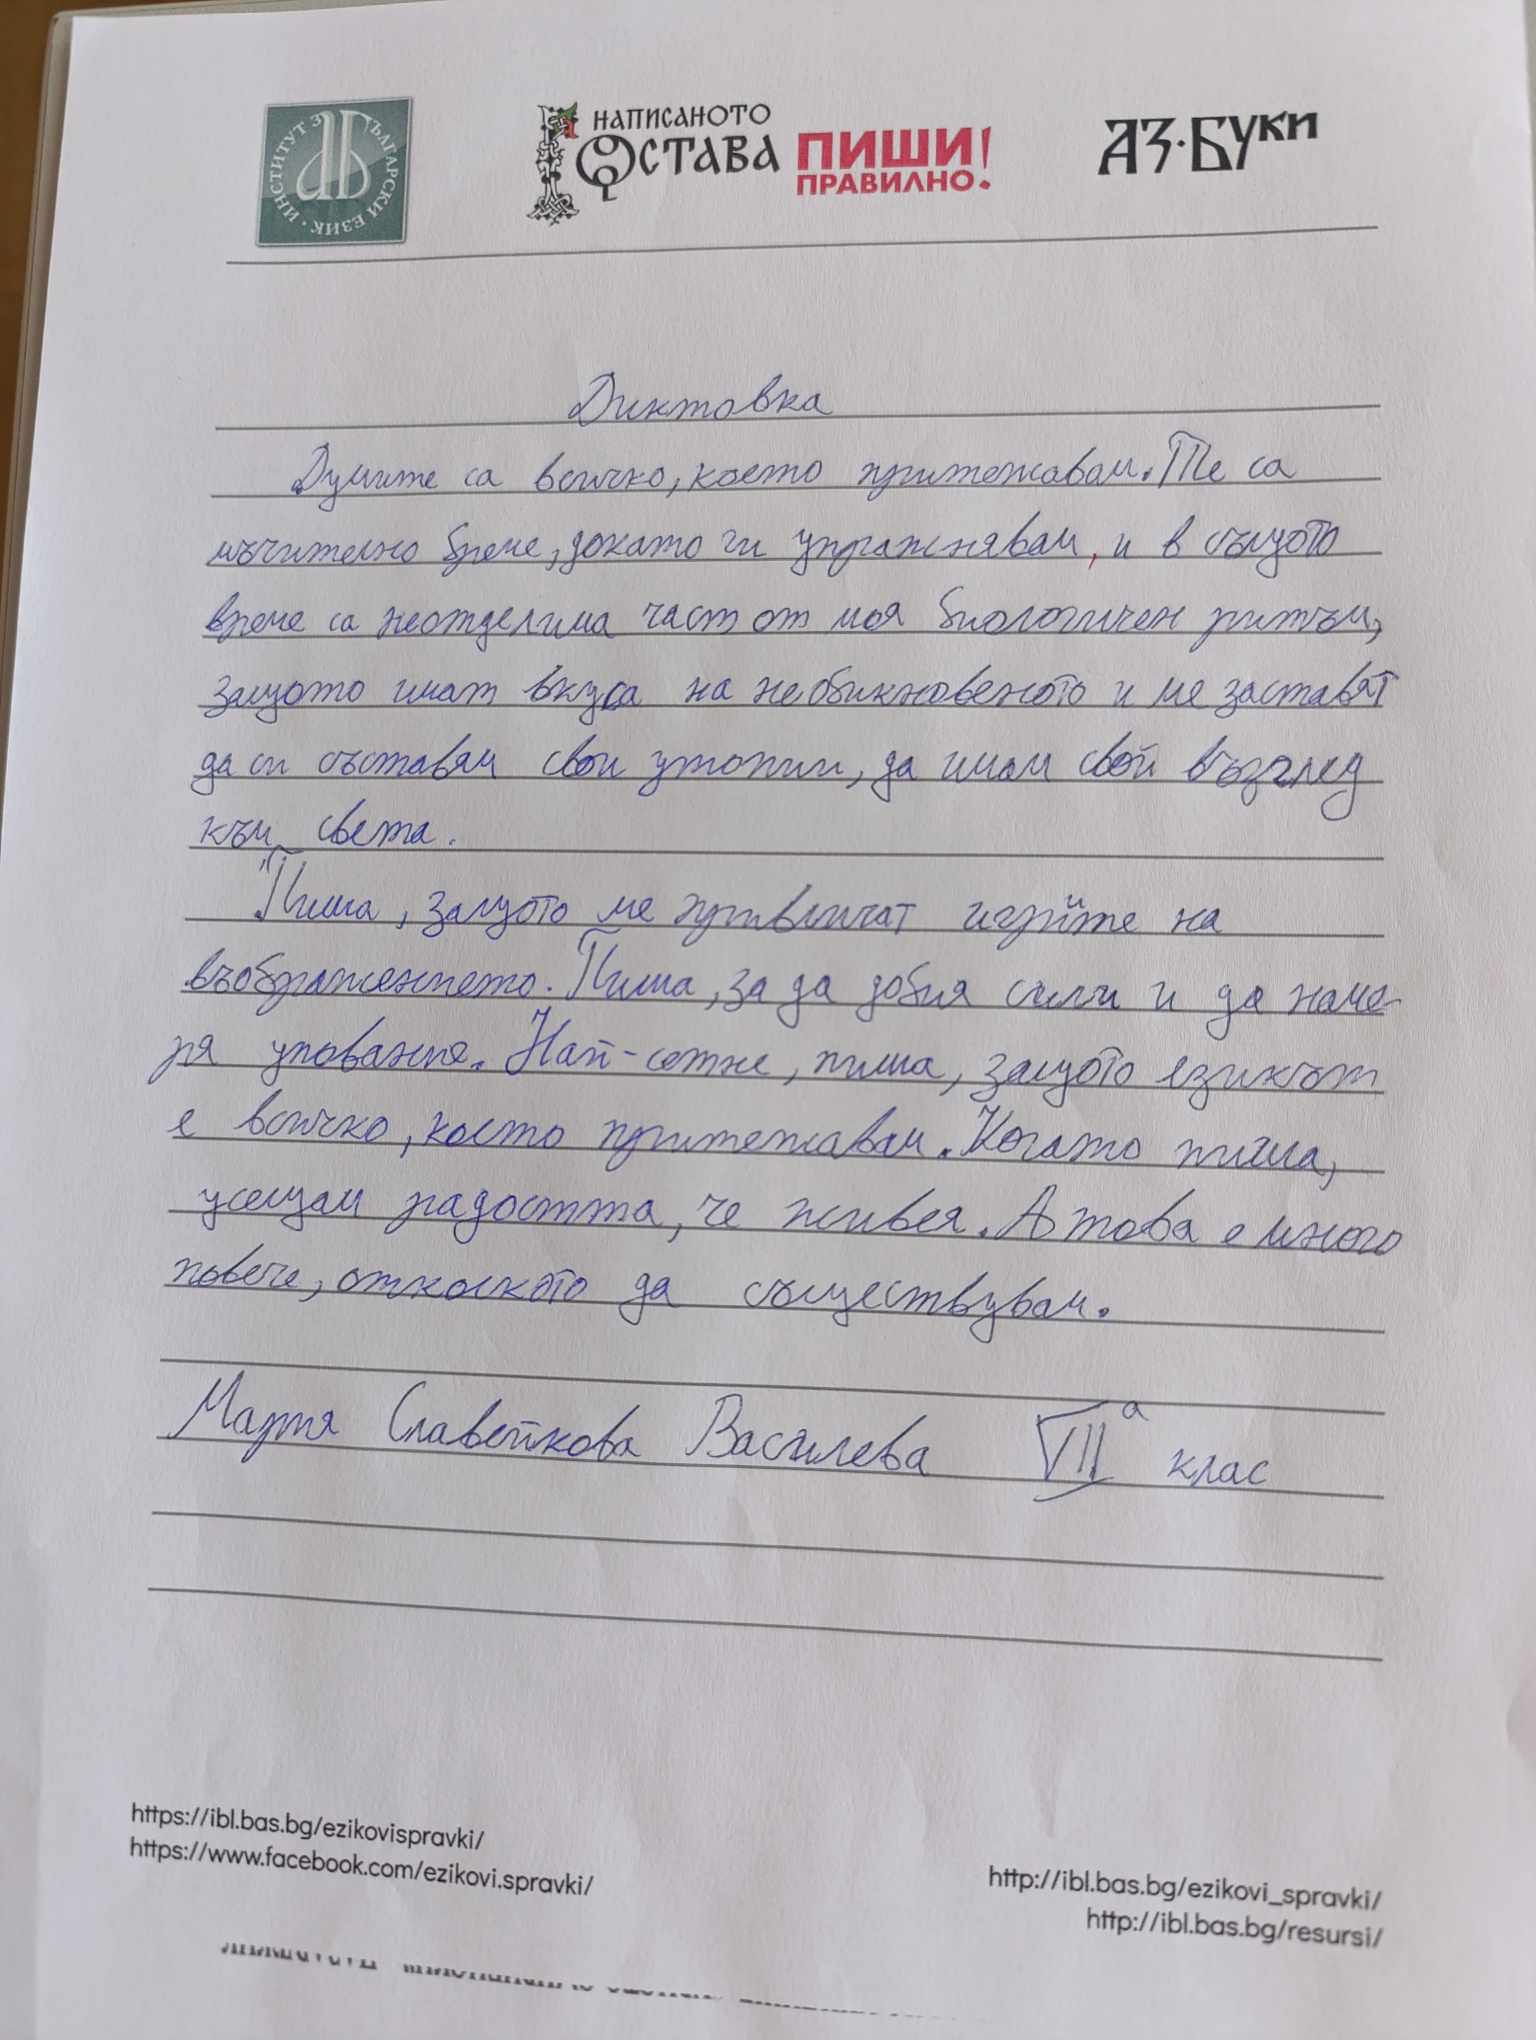 ИНСТИТУТ ЗА БЪЛГАРСКИ ЕЗИК
НАПИСАНОТО
ОСТАВА
ПИШИ
ПРАВИЛНО!
АЗ·БУКИ
Диктовка
Думите са всичко, което притежавам. Те са
мъчително бреме, докато ги упражнявам, и в същото
време са неотделима част от моя биологичен ритъм,
защото имат вкуса на необикновеното и ме заставят
да си съставям свои утопии, да имам свой възглед
към света.
Пиша, защото ме привличат игрите на
въображението. Пиша, за да добия сили и да наме-
ря упование. Най-сетне, пиша, защото езикът
е всичко, което притежавам. Когато пиша,
усещам радостта, че живея. А това е много
повече, отколкото да съществувам.
Мария Славейкова Василева VII а клас
https://ibl.bas.bg/ezikovispravki/
https://www.facebook.com/ezikovi.spravki/
http://ibl.bas.bg/ezikovi_spravki/
http://ibl.bas.bg/resursi/